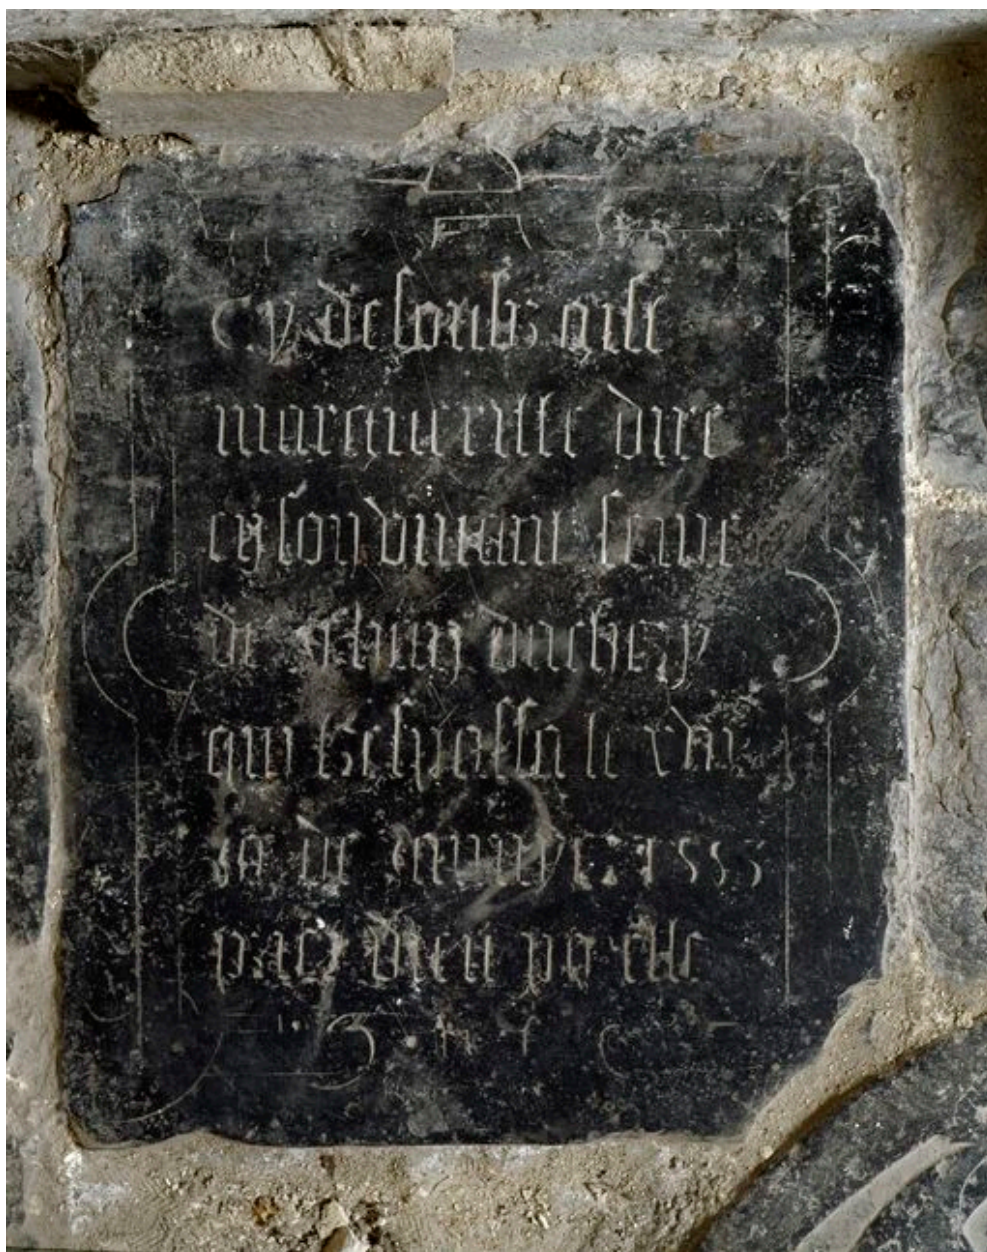 Cy desoubz gist
margueritte dire
en son vivant feme
de Jehan duchezy
qui trespassa le
Jo de 1553
priez dieu po elle